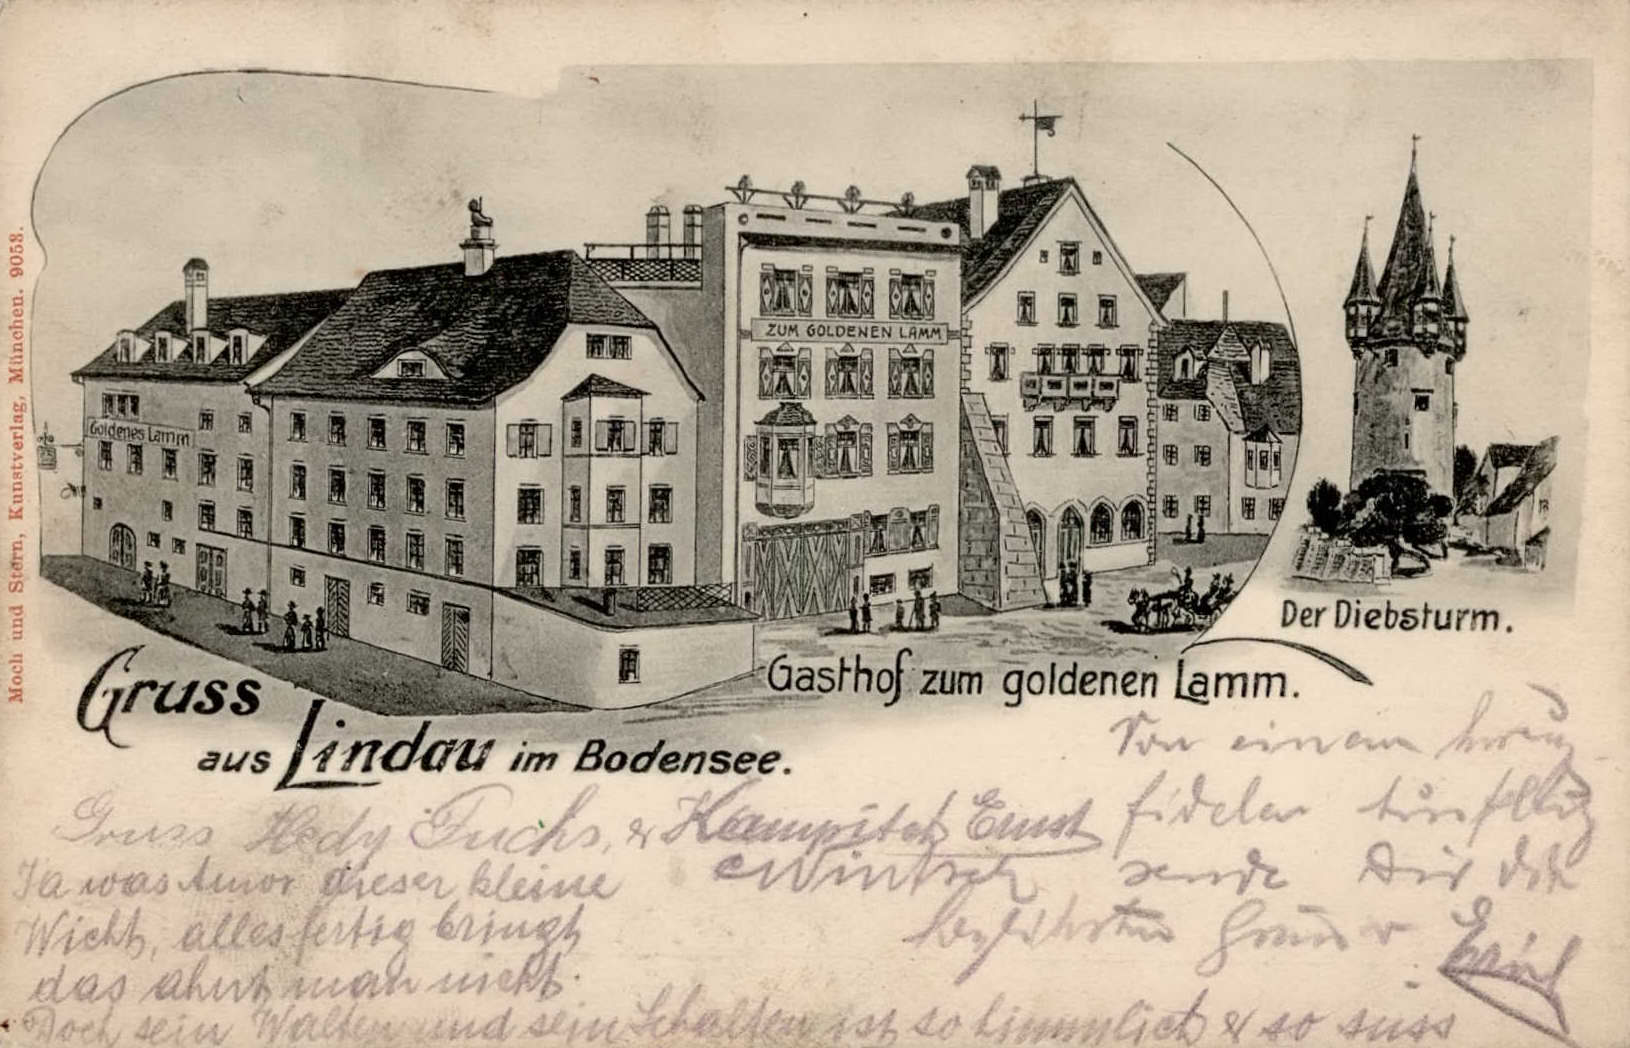 Moch und Stern, Kunstverlag, München. 9053.
Goldenes Lamm
ZUM GOLDENEN LAMM
Der Diebsturm.
Gasthof zum goldenen Lamm.
Gruss
aus Lindau im Bodensee.
Gruss Hedy Fuchs, &
Ja was Amor dieser kleine
Wicht, alles fertig bringt
das ahnt man nicht.
Doch sein Walten und sein Schalten ist so himmlich & so süss
Von einem
fidelen
sende Dir die
herzlichsten Grüsse